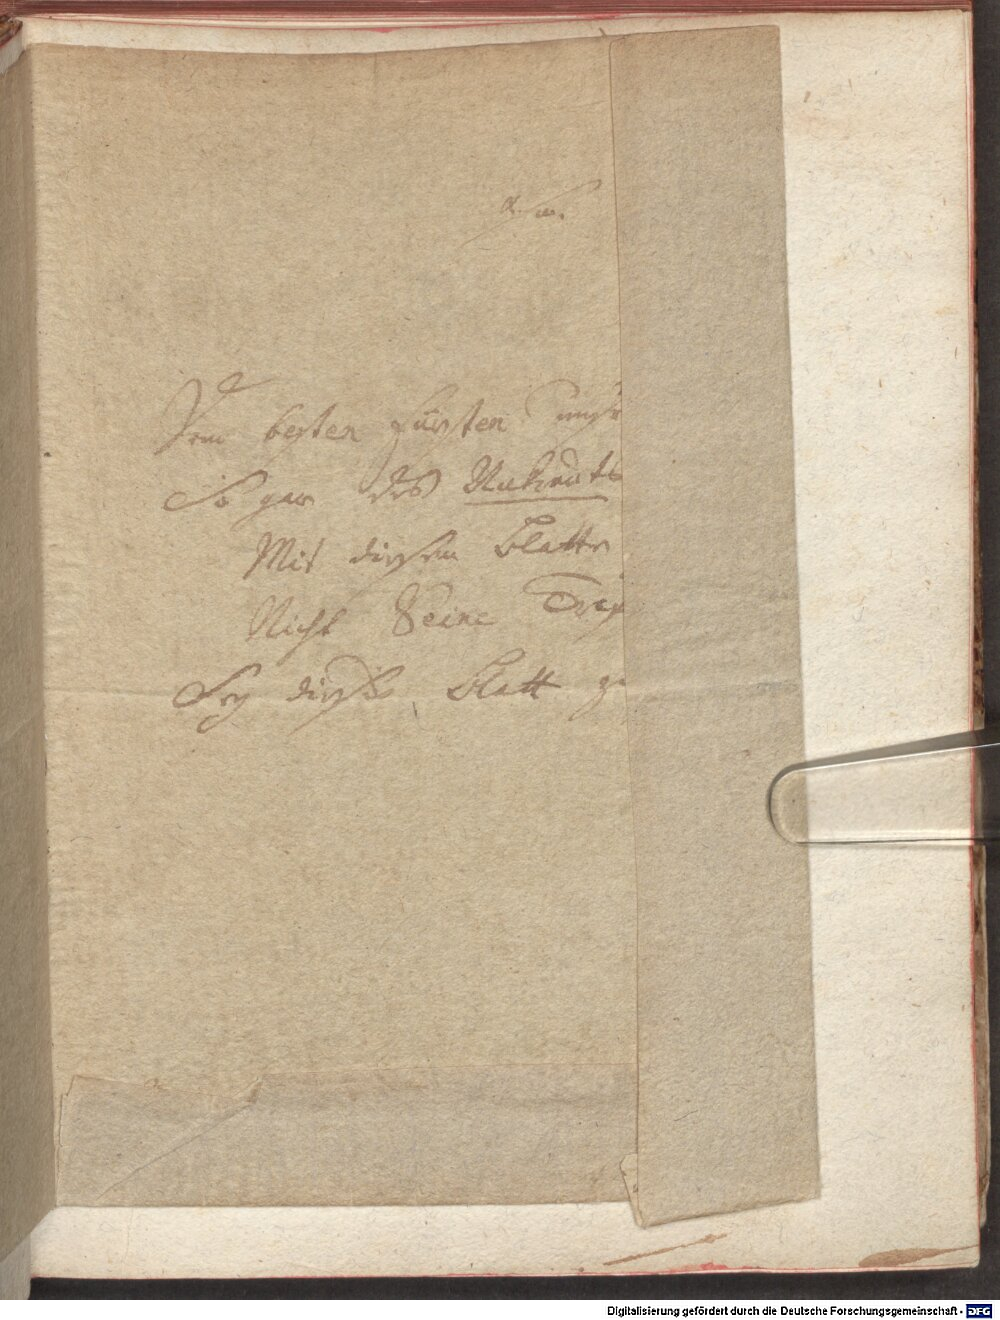 Dem besten Fürsten unsr
So gar des Unkrauts
Mit diesem Blatte
Nicht Seine Drey
Sey dieses Blatt ge
Digitalisierung gefördert durch die Deutsche Forschungsgemeinschaft - DFG